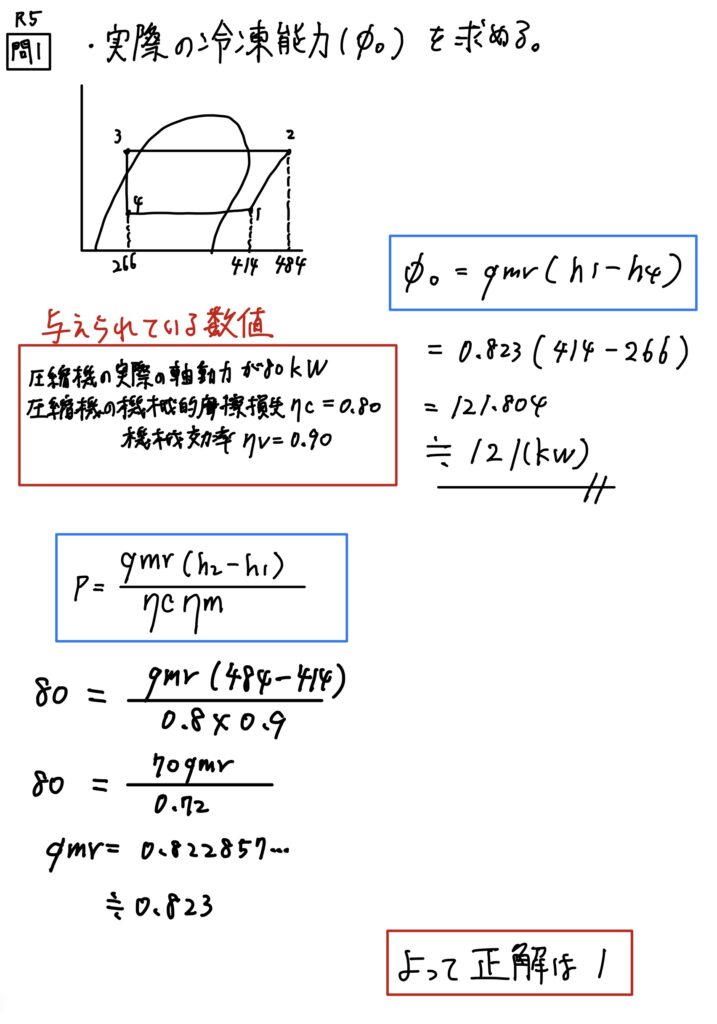 R5
問1
・実際の冷凍能力(φ₀)を求める。
3
2
4
1
266
414
484
φ₀ = qmr(h1-h4)
= 0.823(414-266)
= 121.804
≒ 121(kW)
与えられている数値
圧縮機の実際の軸動力が80kW
圧縮機の機械的摩擦損失ηc=0.80
機械効率ηv=0.90
P= qmr(h2-h1)
ηcηm
80 = qmr(484-414)
0.8×0.9
80 = 70qmr
0.72
qmr= 0.822857…
≒ 0.823
よって正解は 1